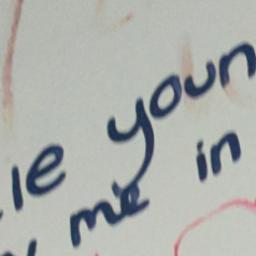 le youn
me in